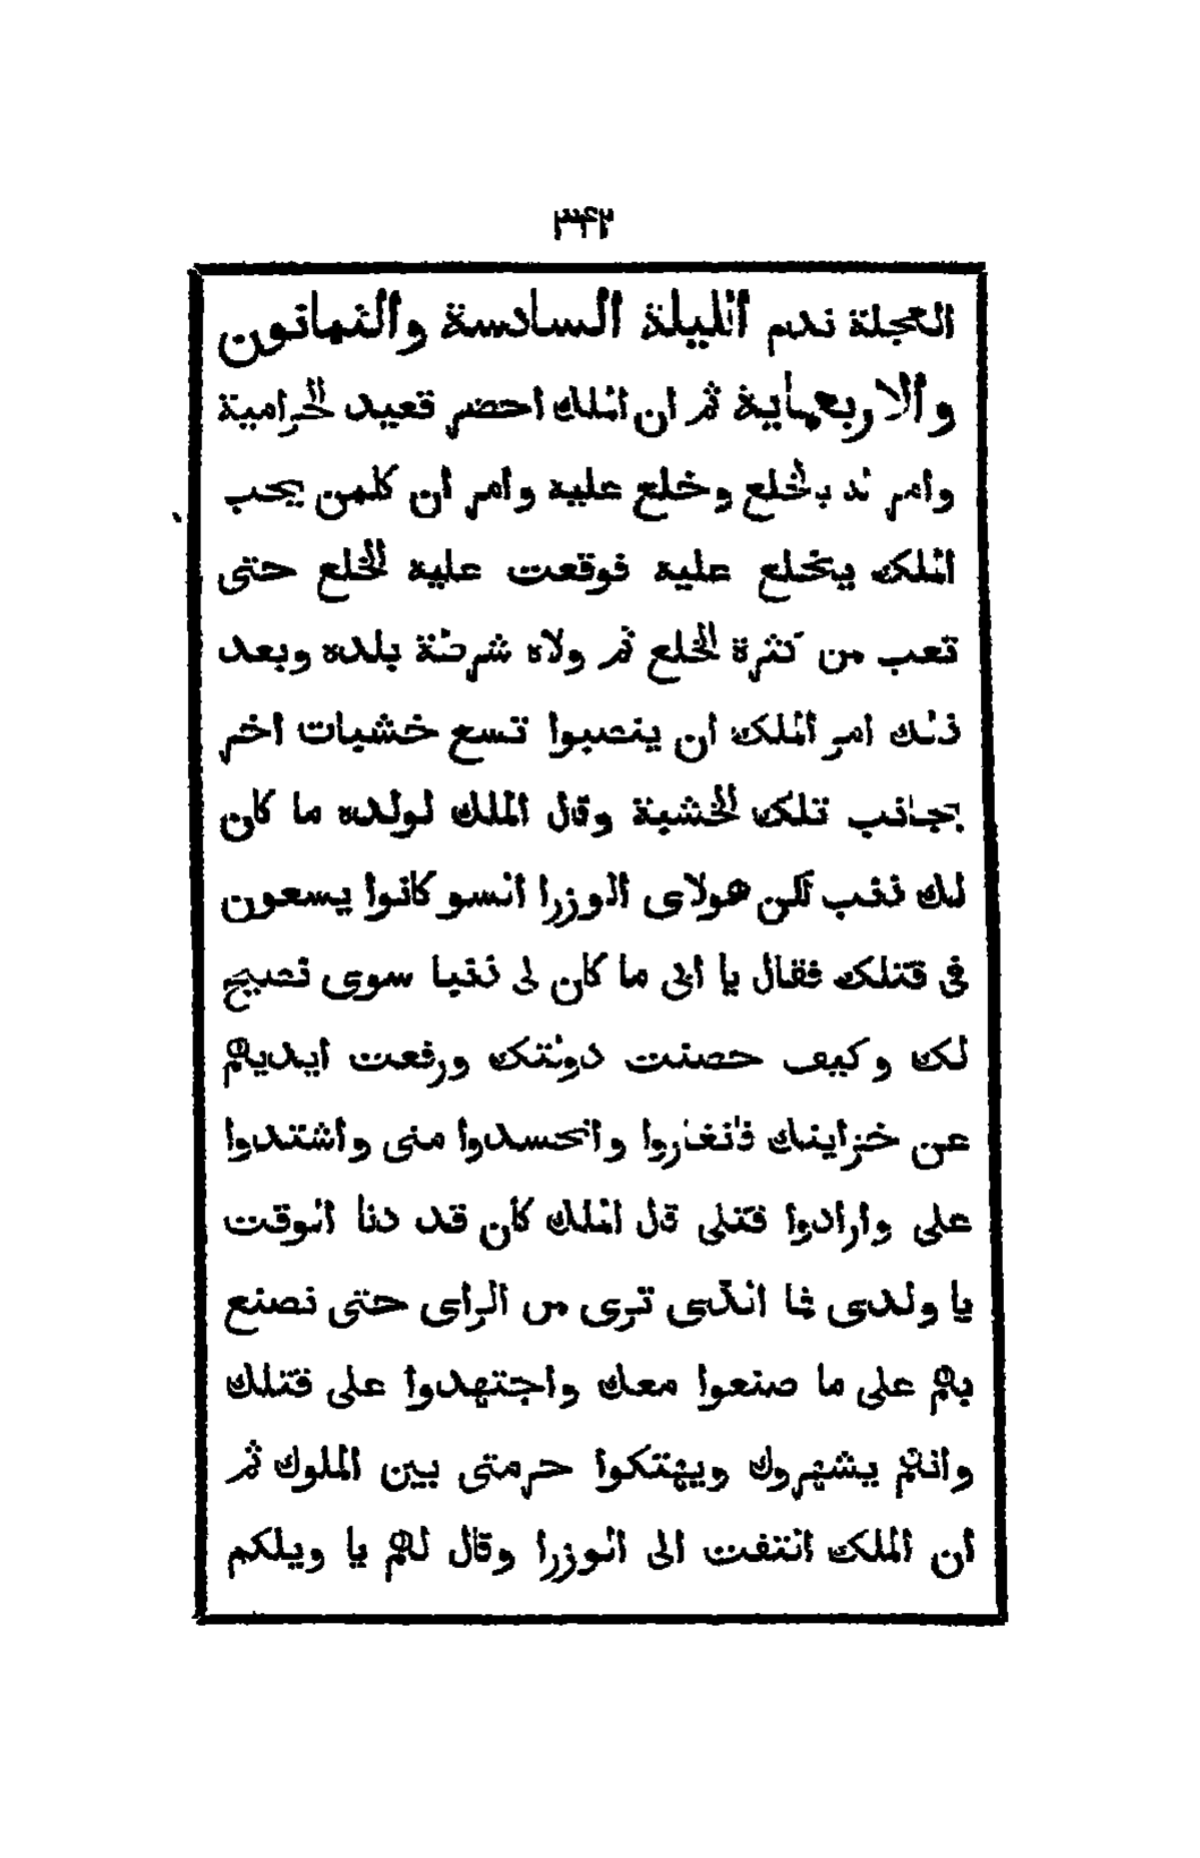 ٣٤٢
العجلة ندم الليلة السادسة والثمانون
والاربعماية ثم ان الملك احضر قعيد الحرامية
وامر له بالخلع وخلع عليه وامر ان كلمن يحب
الملك يخلع عليه فوقعت عليه الخلع حتى
تعب من كثرة الخلع ثم ولاه شرطة بلده وبعد
ذلك امر الملك ان ينصبوا تسع خشبات اخر
بجانب تلك الخشبة وقال الملك لولده ما كان
لك ذنب لكن هولاى الوزرا السو كانوا يسعون
فى قتلك فقال يا ابى ما كان لى ذنبا سوى نصيح
لك وكيف حصنت دولتك ورفعت ايديهم
عن خزاينك فانغاروا وانحسدوا منى واشتدوا
على وارادوا قتلى قال الملك كان قد دنا الوقت
يا ولدى فما الذى ترى من الراى حتى نصنع
بهم على ما صنعوا معك واجتهدوا على قتلك
وانهم يشهروك ويهتكوا حرمتى بين الملوك ثم
ان الملك التفت الى الوزرا وقال لهم يا ويلكم